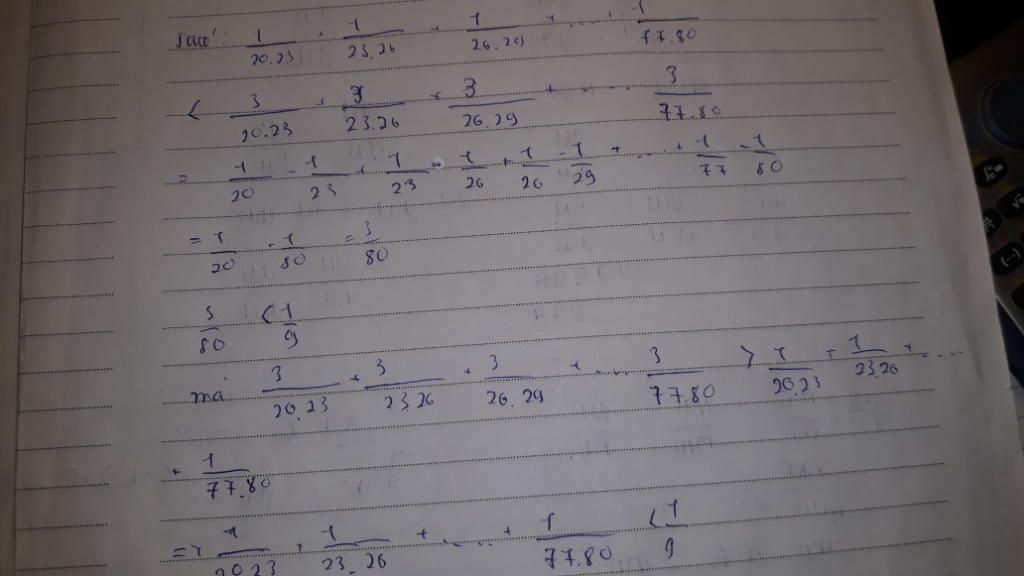 Ta có: 1/20.23 + 1/23.26 + 1/26.29 + ..... + 1/77.80
< 3/20.23 + 3/23.26 + 3/26.29 + ..... 3/77.80
= 1/20 - 1/23 + 1/23 - 1/26 + 1/26 - 1/29 + ... + 1/77 - 1/80
= 1/20 - 1/80 = 3/80
3/80 < 1/9
mà 3/20.23 + 3/23.26 + 3/26.29 + .... 3/77.80 > 1/20.23 + 1/23.26 + ....
+ 1/77.80
=> 1/20.23 + 1/23.26 + ..... + 1/77.80 < 1/9